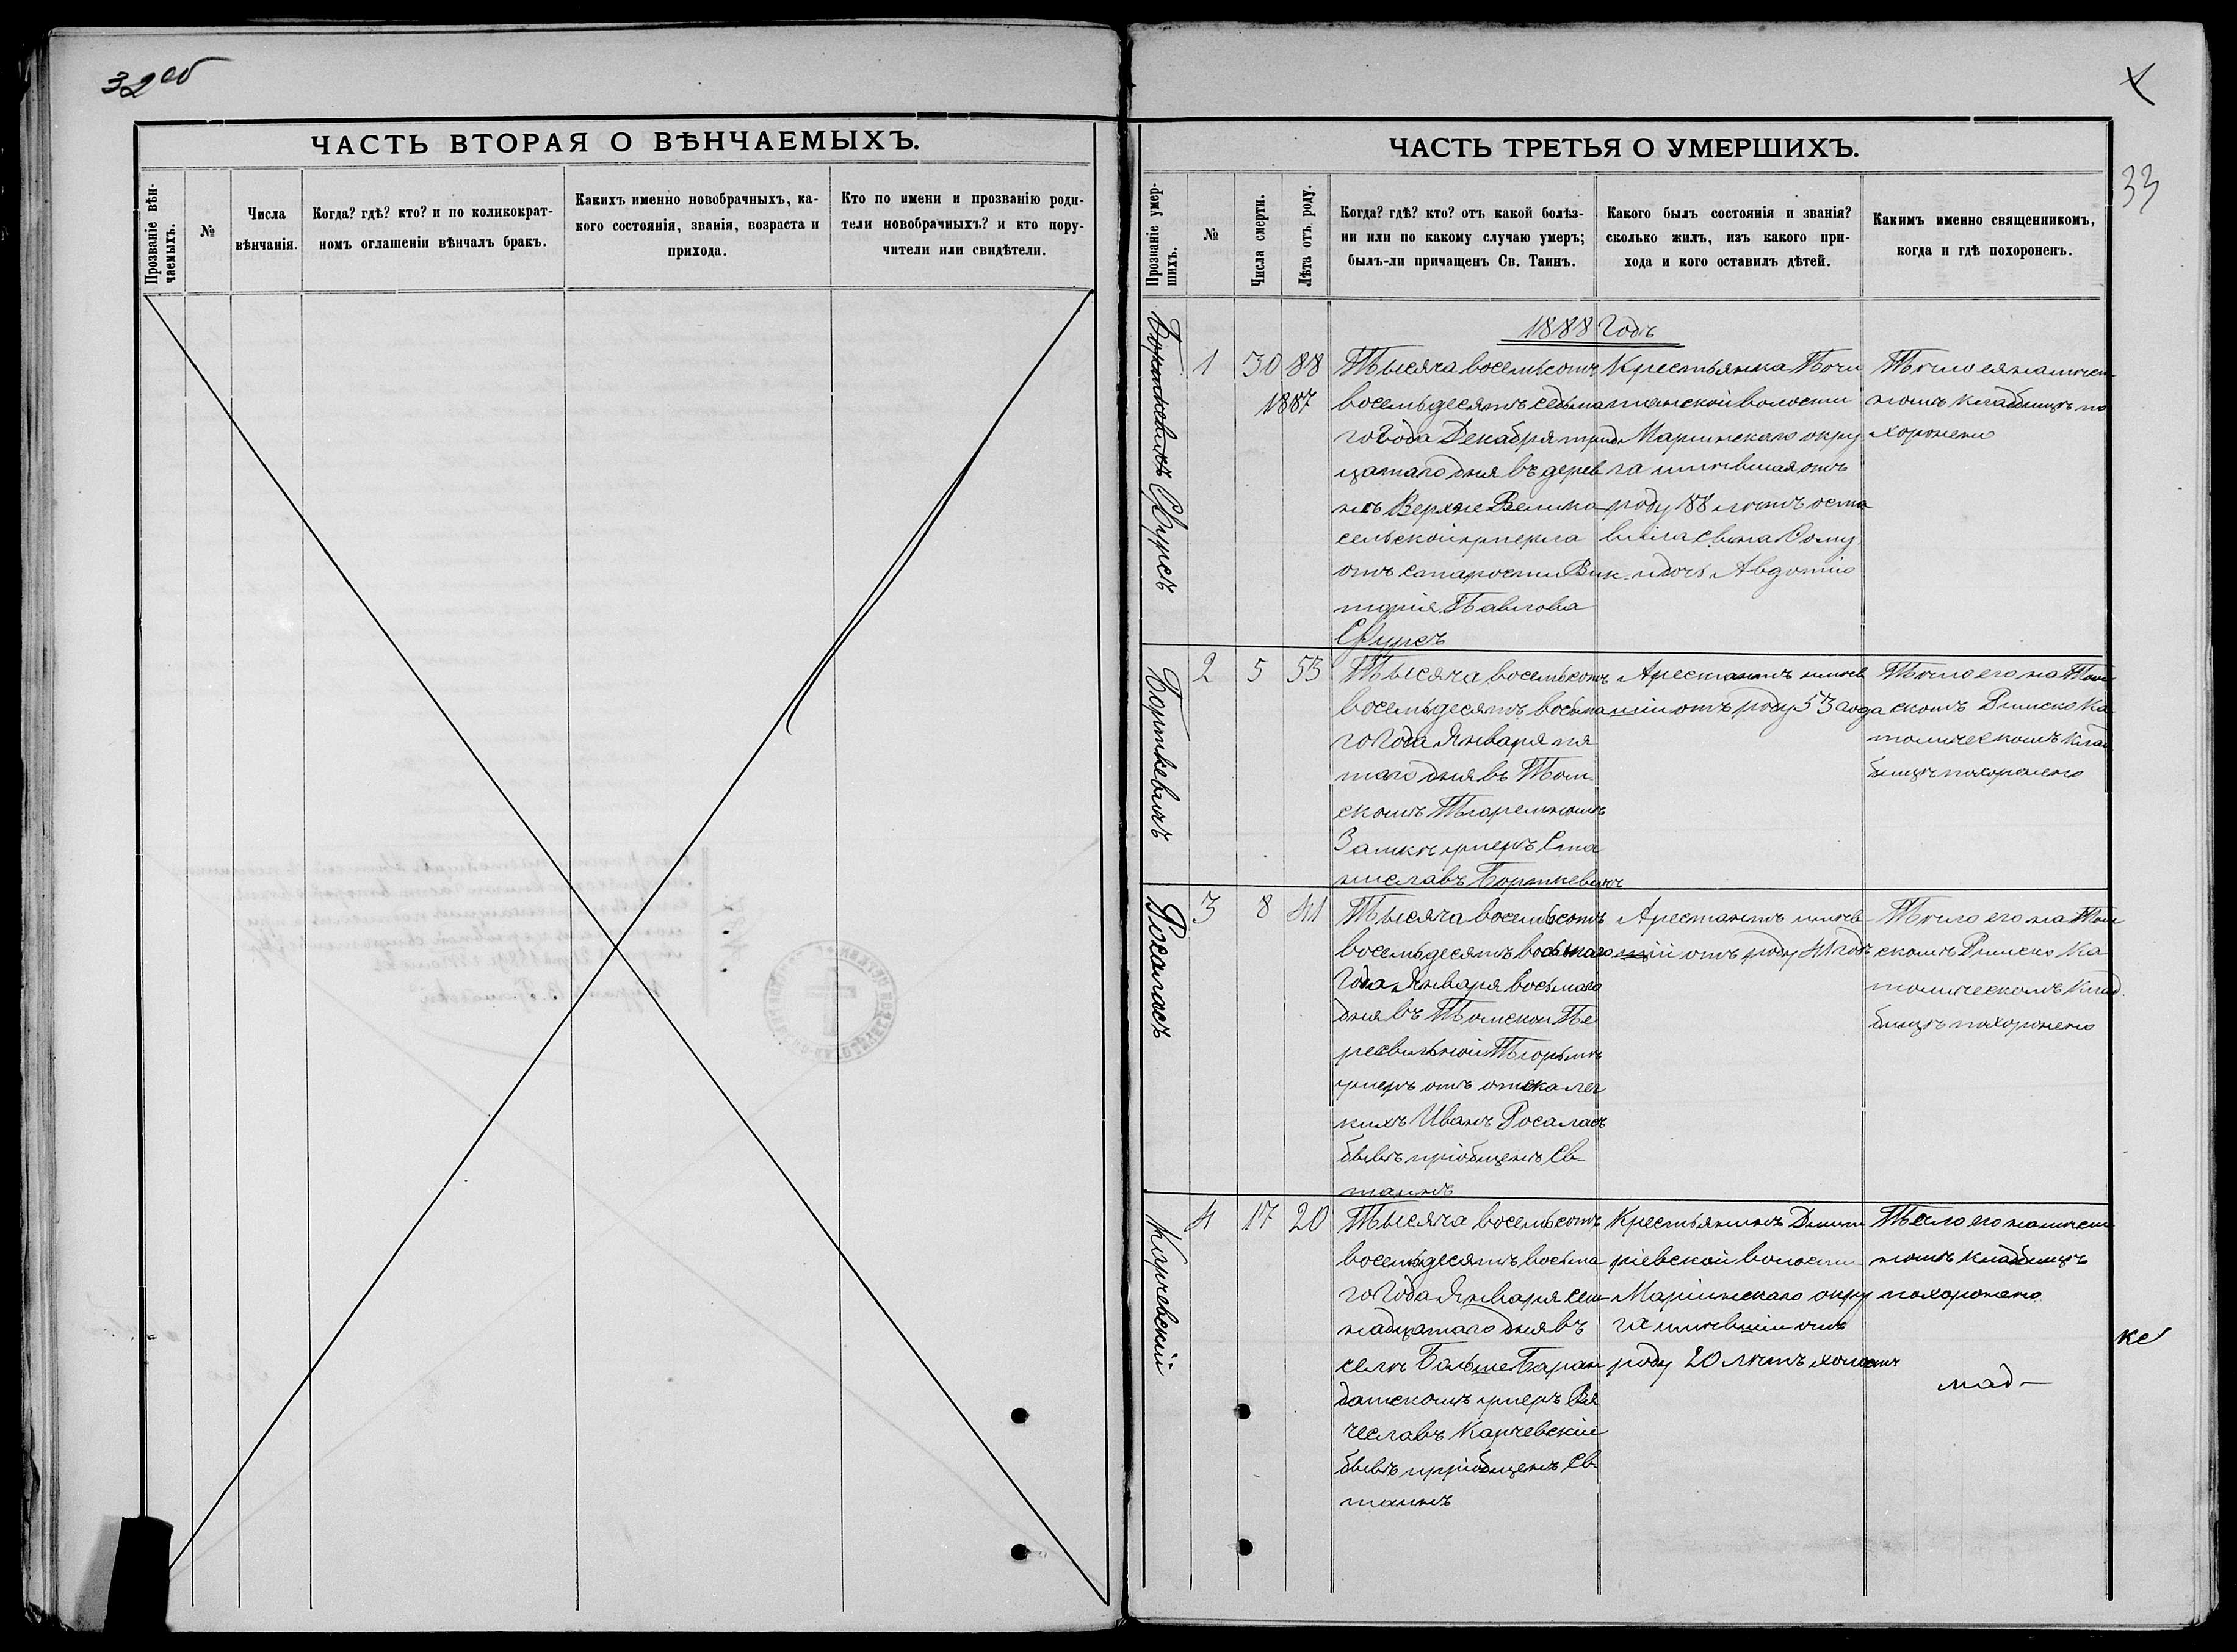 32 об
ЧАСТЬ ВТОРАЯ О ВѢНЧАЕМЫХЪ.
Прозваніе вѣн-
чаемыхъ.
№
Числа
вѣнчанія.
Когда? гдѣ? кто? и по коликократ-
номъ оглашеніи вѣнчалъ бракъ.
Какихъ именно новобрачныхъ, ка-
кого состоянія, званія, возраста и
прихода.
Кто по имени и прозванію роди-
тели новобрачныхъ? и кто пору-
чители или свидѣтели.
33
ЧАСТЬ ТРЕТЬЯ О УМЕРШИХЪ.
Прозваніе умер-
шихъ.
№
Числа смерти.
Лѣта отъ роду.
Когда? гдѣ? кто? отъ какой болѣз-
ни или по какому случаю умеръ;
былъ-ли причащенъ Св. Таинъ.
Какого былъ состоянія и званія?
сколько жилъ, изъ какого при-
хода и кого оставилъ дѣтей.
Какимъ именно священникомъ,
когда и гдѣ похороненъ.
1888 Годъ
Борткевичъ
1
30
1887
88
Тысяча восемьсотъ
восемьдесятъ седьма
го Года Декабря трид
цатаго дня въ дерев
нѣ Верхне
сельской умерла
отъ старости Вик
торія Павлова
Крестьянка Почи
танской волости
Маріинскаго окру
га имѣвшая отъ
роду 88 лѣтъ оста
вила сына Фому
и дочь Авдотію
Тѣло ея на мѣст
номъ кладбищѣ по
хоронено
Борткевичъ
2
5
53
Тысяча восемьсотъ
восемьдесятъ восьма
го Года Января пя
таго дня въ Том
скомъ Тюремномъ
Замкѣ умеръ Ста
ниславъ Борткевичъ
Арестантъ имѣв
шій отъ роду 53 года
Тѣло его на Том
скомъ Римско Ка
толическомъ клад
бищѣ похоронено
Росаласъ
3
8
41
Тысяча восемьсотъ
восемьдесятъ восьмаго
Года Января восьмаго
дня въ Томской Пе
ресыльной Тюрьмѣ
умеръ отъ отека лег
кихъ Иванъ Росаласъ
бывъ пріобщенъ Св
таинъ
Арестантъ имѣв
шій отъ роду 41 годъ
Тѣло его на Том
скомъ Римско Ка
толическомъ клад
бищѣ похоронено
Карчевскій
4
17
20
Тысяча восемьсотъ
восемьдесятъ восьма
го Года Января сем
надцатаго дня въ
селѣ Больше Баран
датскомъ умеръ Вя
чеславъ Карчевскій
бывъ пріобщенъ Св
таинъ
Крестьянинъ Дмит
ріевской волости
Маріинскаго окру
га имѣвшій отъ
роду 20 лѣтъ холостъ
Тѣло его на мѣст
номъ кладбищѣ
похоронено